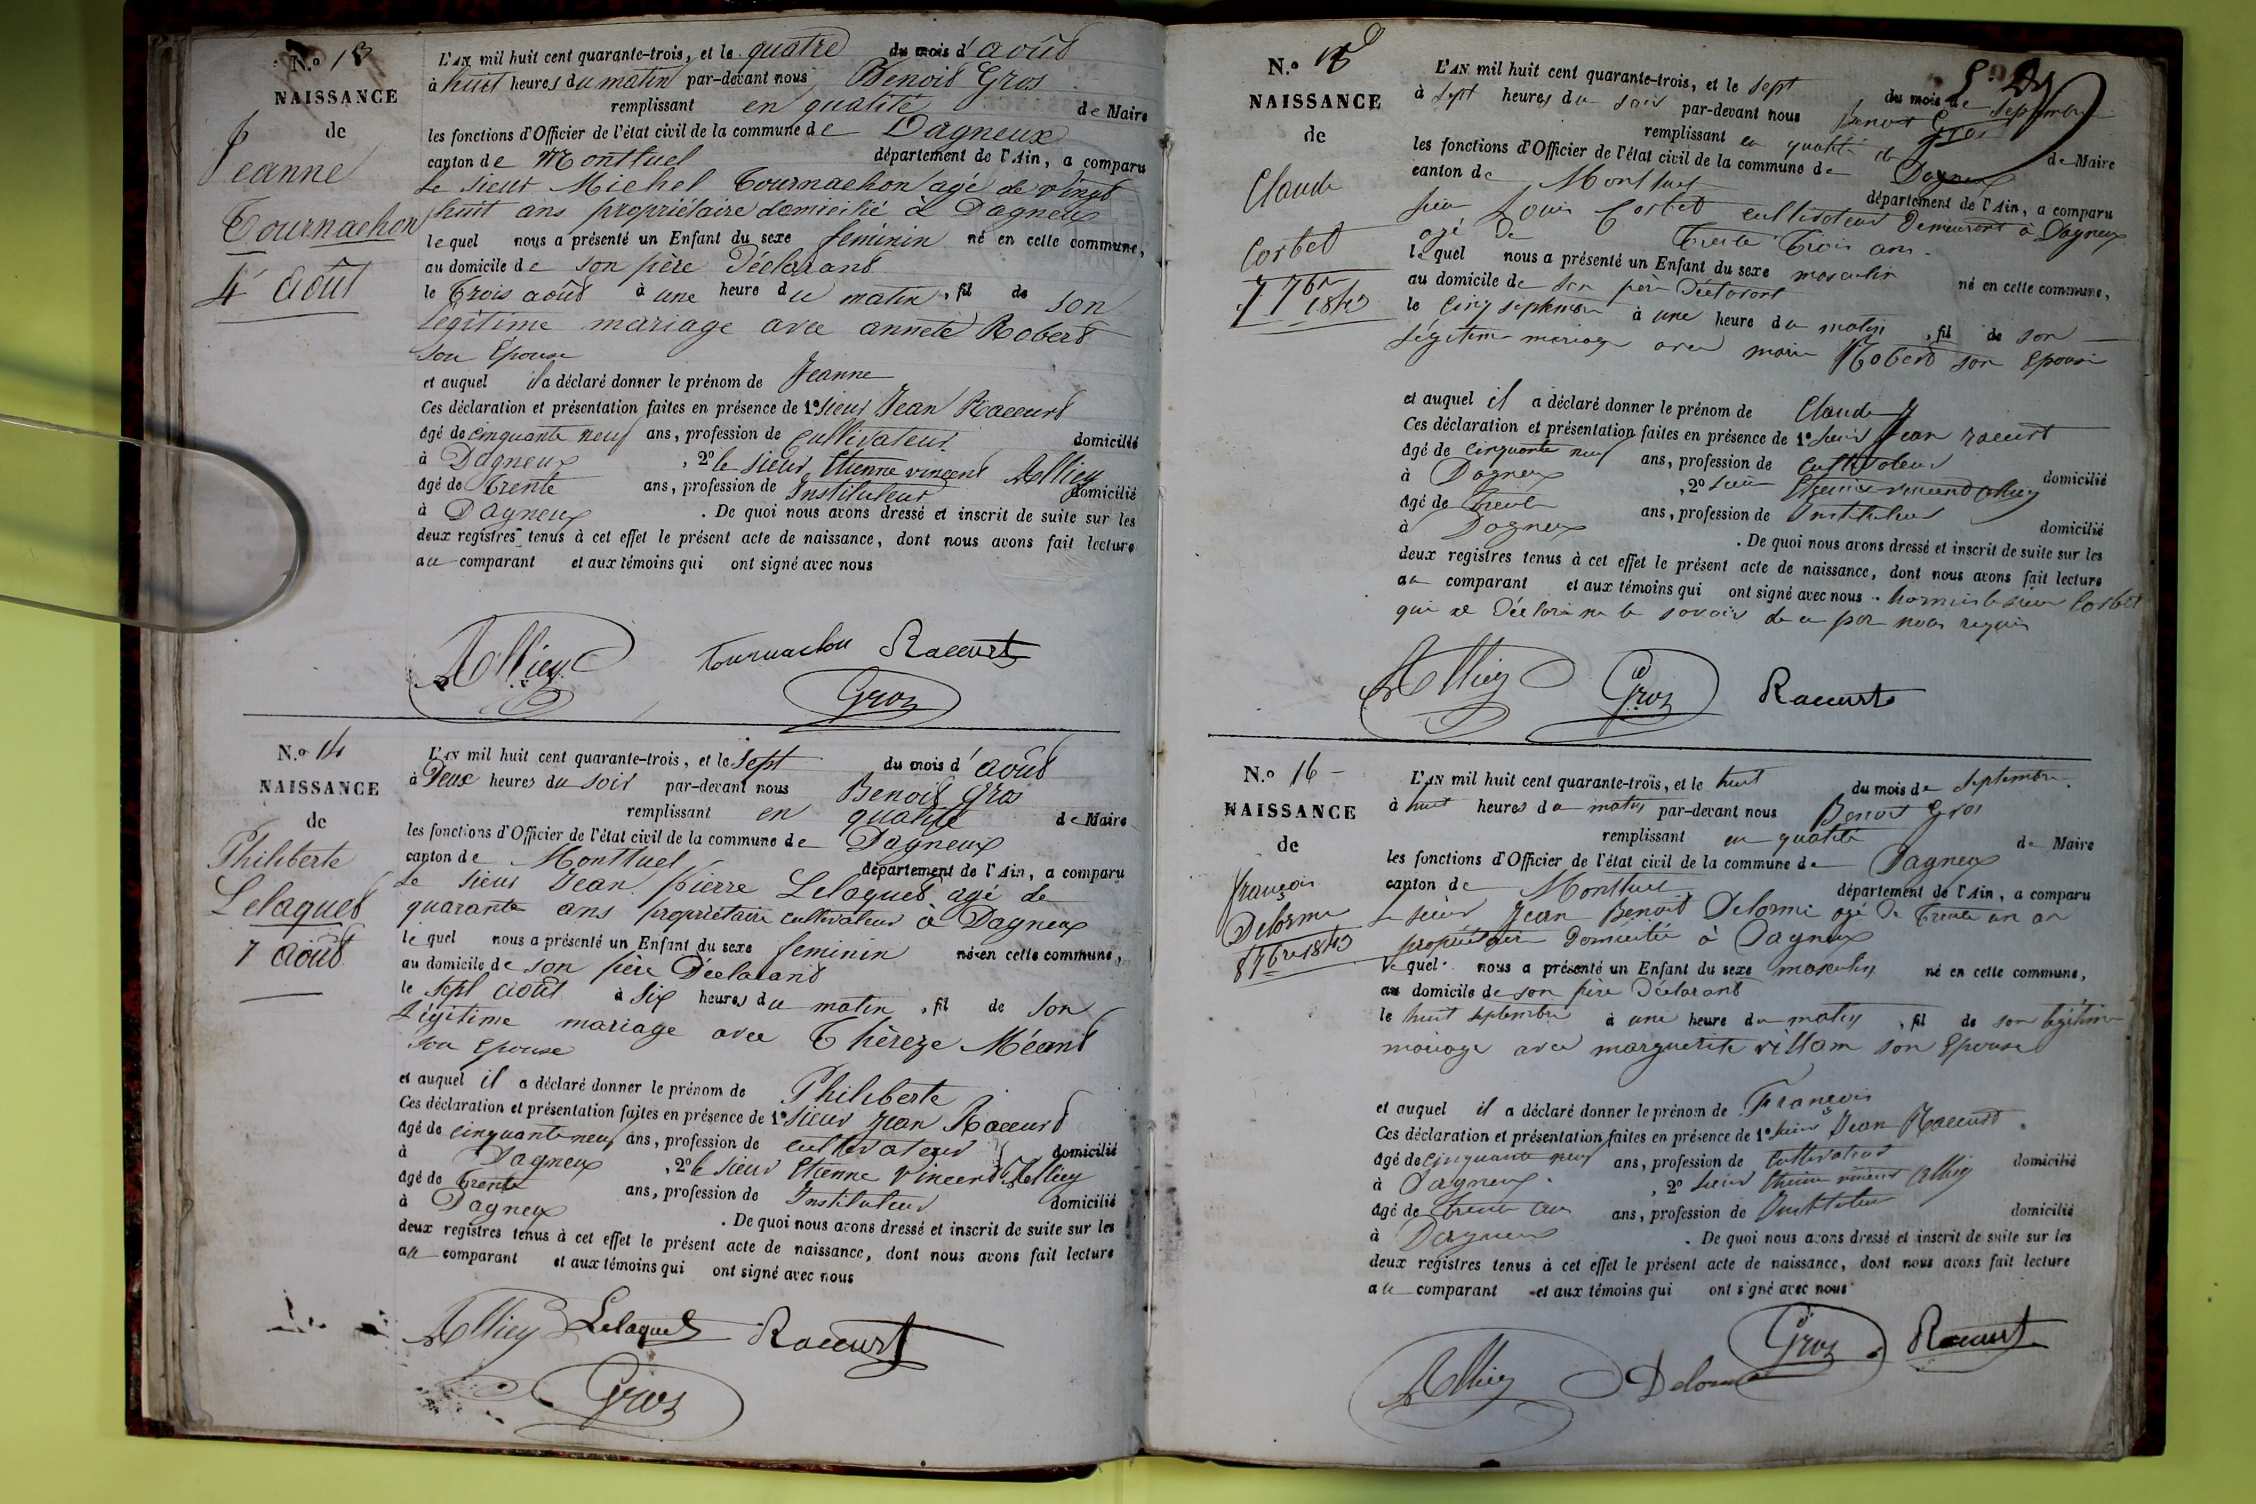 N.o 13
NAISSANCE
de
Jeanne
Tournachon
4 août
L'AN mil huit cent quarante-trois, et le quatre du mois d'août
à huit heures du matin par-devant nous Benoit Gros
remplissant en qualité de Maire
les fonctions d'Officier de l'état civil de la commune de Dagneux
canton de Montluel département de l'Ain, a comparu
Le sieur Michel Tournachon agé de vingt
huit ans propriétaire domicilié à Dagneux
lequel nous a présenté un Enfant du sexe féminin né en cette commune,
au domicile de son père Déclarant
le trois août à une heure du matin, fil de son
légitime mariage avec annete Robert
son Epouse
et auquel il a déclaré donner le prénom de Jeanne
Ces déclaration et présentation faites en présence de 1o sieur Jean Raccurt
âgé de cinquante neuf ans, profession de cultivateur domicilié
à Dagneux, 2o le sieur Etienne vincent Alliey
âgé de Trente ans, profession de Instituteur domicilié
à Dagneux. De quoi nous avons dressé et inscrit de suite sur les
deux registres tenus à cet effet le présent acte de naissance, dont nous avons fait lecture
au comparant et aux témoins qui ont signé avec nous
Alliey Tournachon Raccurt
Gros
N.o 14
NAISSANCE
de
Philiberte
Lelaquet
7 août
L'AN mil huit cent quarante-trois, et le sept du mois d'août
à Deux heures du soir par-devant nous Benoit Gros
remplissant en qualité de Maire
les fonctions d'Officier de l'état civil de la commune de Dagneux
canton de Montluel département de l'Ain, a comparu
Le sieur Jean pierre Lelaquet agé de
quarante ans propriétaire cultivateur à Dagneux
lequel nous a présenté un Enfant du sexe feminin né en cette commune,
au domicile de son père Déclarant
le sept août à six heures du matin, fil de son
Légitime mariage avec Thèreze Méant
son Epouse
et auquel il a déclaré donner le prénom de Philiberte
Ces déclaration et présentation faites en présence de 1o sieur Jean Raccurt
âgé de cinquante neuf ans, profession de cultivateur domicilié
à Dagneux, 2o le sieur Etienne Vincent Alliey
âgé de Trente ans, profession de Instituteur domicilié
à Dagneux. De quoi nous avons dressé et inscrit de suite sur les
deux registres tenus à cet effet le présent acte de naissance, dont nous avons fait lecture
au comparant et aux témoins qui ont signé avec nous
Alliey Lelaquet Raccurt
Gros
N.o 15
NAISSANCE
de
Claude
Corbet
7 7bre
1843
L'AN mil huit cent quarante-trois, et le sept du mois de septembre
à sept heures du soir par-devant nous Benoit Gros
remplissant en qualité de Maire
les fonctions d'Officier de l'état civil de la commune de Dagneux
canton de Montluel département de l'Ain, a comparu
sieur Louis Corbet cultivateur Demeurant à Dagneux
agé de Trente Trois ans.
lequel nous a présenté un Enfant du sexe masculin né en cette commune,
au domicile de son père Déclarant
le cinq septembre à une heure du matin, fil de son
légitime mariage avec marie Robert son Epouse
et auquel il a déclaré donner le prénom de Claude
Ces déclaration et présentation faites en présence de 1o sieur Jean raccurt
âgé de cinquante neuf ans, profession de cultivateur domicilié
à Dagneux, 2o sieur Etienne vincent Alliey
âgé de Trente ans, profession de Instituteur domicilié
à Dagneux. De quoi nous avons dressé et inscrit de suite sur les
deux registres tenus à cet effet le présent acte de naissance, dont nous avons fait lecture
au comparant et aux témoins qui ont signé avec nous. hormis le sieur Corbet
qui a Déclaré ne le savoir de ce par nous requis
Alliey Gros Raccurt
N.o 16
NAISSANCE
de
françois
Delorme
8 7bre 1843
L'AN mil huit cent quarante-trois, et le huit du mois de septembre
à huit heures du matin par-devant nous Benoit Gros
remplissant en qualité de Maire
les fonctions d'Officier de l'état civil de la commune de Dagneux
canton de Montluel département de l'Ain, a comparu
Le sieur Jean Benoit Delorme agé de Trente un an
propriétaire Domicilié à Dagneux
lequel nous a présenté un Enfant du sexe masculin né en cette commune,
au domicile de son père Déclarant
le huit septembre à une heure du matin, fil de son légitime
mariage avec marguerite villam son Epouse
et auquel il a déclaré donner le prénom de François
Ces déclaration et présentation faites en présence de 1o sieur Jean Raccurt
âgé de cinquante neuf ans, profession de Cultivateur domicilié
à Dagneux, 2o sieur Etienne vincent Alliey
âgé de Trente ans, profession de Instituteur domicilié
à Dagneux. De quoi nous avons dressé et inscrit de suite sur les
deux registres tenus à cet effet le présent acte de naissance, dont nous avons fait lecture
au comparant et aux témoins qui ont signé avec nous
Alliey Delorme Gros Raccurt